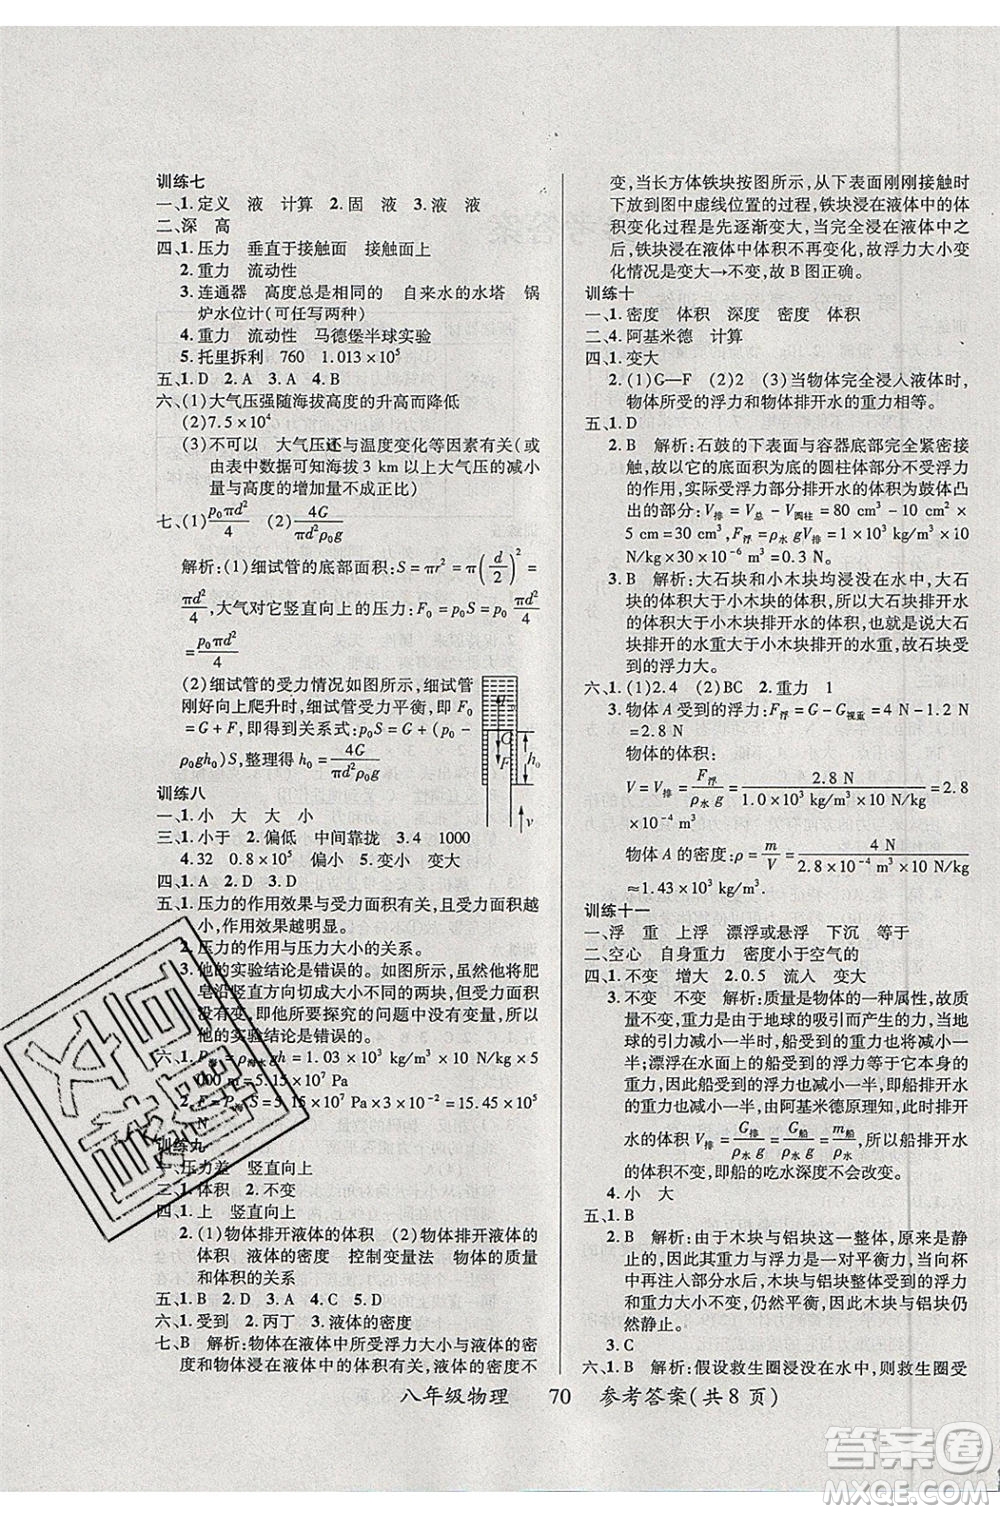 训练七
一、1.定义 液 计算 2.固 液 3.液 液
二、深 高
四、1.压力 垂直于接触面 接触面上
2.重力 流动性
3.连通器 高度总是相同的 自来水的水塔 锅
炉水位计(可任写两种)
4.重力 流动性 马德堡半球实验
5.托里拆利 760 1.013×10⁵
五、1.D 2.A 3.A 4.B
六、(1)大气压强随海拔高度的升高而降低
(2)7.5×10⁴
(3)不可以 大气压还与温度变化等因素有关(或
由表中数据可知海拔 3 km 以上大气压的减小
量与高度的增加量不成正比)
七、(1)p₀πd²/4 (2)4G/πd²ρ₀g
解析:(1)细试管的底部面积:S=πr²=π(d/2)²=
πd²/4,大气对它竖直向上的压力:F₀=p₀S=
p₀πd²/4
(2)细试管的受力情况如图所示,细试管
刚好向上爬升时,细试管受力平衡,即 F₀
=G+F,即关系式:p₀S=G+(p₀-
ρ₀gh₀)S,整理得 h₀=4G/πd²ρ₀g
G
F
h₀
v
训练八
一、小 大 大 小
三、1.小于 2.偏低 中间靠拢 3.4 1000
4.32 0.8×10⁵ 偏小 5.变小 变大
四、1.A 2.D 3.D
五、1.压力的作用效果与受力面积有关,受力面积越
小,作用效果越明显。
2.压力的作用与压力大小的关系。
3.他的实验结论是错误的。如图所示,他将肥
皂沿竖直方向切成大小不同的两块,受力面积
改变,没有控制压力不变,所以
他的实验结论是错误的。
000 m=5.15×10⁵ Pa
N
训练九
一、压力差 竖直向上
三、1.体积 2.不变
四、1.上 竖直向上
2.(1)物体排开液体的体积 (2)物体排开液体的
体积 液体的密度 控制变量法 物体的质量
和体积的关系
五、1.B 2.D 3.A 4.C 5.D
六、1.受到 2.丙丁 3.液体的密度
七、B 解析:物体在液体中所受浮力大小与液体的密
度和物体浸在液体中的体积有关,液体的密度不
变,当长方体铁块按图所示,从下表面刚刚接触时
下放到图中虚线位置的过程,铁块浸在液体中的体
积变化过程是先逐渐变大,当长方体铁块完全浸没
后,铁块浸在液体中体积不再变化,故浮力大小变
化情况是变大→不变,故 B 图正确。
训练十
一、1.密度 体积 深度 密度 体积
二、4.阿基米德 计算
四、1.变大
2.(1)G—F (2)2 (3)当物体完全浸入液体时,
物体所受的浮力和物体排开水的重力相等。
五、1.D
2.B 解析:石鼓的下表面与容器底部完全紧密接
触,故以石鼓的底面积为底的圆柱体部分不受浮力
的作用,实际受浮力部分排开水的体积为鼓体凸
出的部分:V排=V总-V圆柱=80 cm³-10 cm²×
5 cm=30 cm³,F浮=ρ水gV排=1×10³ kg/m³×10
N/kg×30×10⁻⁶ m³=0.3 N。
3.B 解析:大石块和小木块均浸没在水中,大石
块的体积大于小木块的体积,所以大石块排开水
的体积大于小木块排开水的体积,也就是说大石
块排开水的重大于小木块排开水的重,故石块受
到的浮力大。
六、1.(1)2.4 (2)BC 2.重力 1
3.物体 A 受到的浮力:F浮=G-G视重=4 N-1.2 N
=2.8 N
物体的体积:
V=V排=F浮/ρ水g=2.8 N/1.0×10³ kg/m³×10 N/kg=2.8
×10⁻⁴ m³
物体 A 的密度:ρ=m/V=4 N/2.8×10⁻⁴ m³×10 N/kg
≈1.43×10³ kg/m³
训练十一
一、浮 重 上浮 漂浮或悬浮 下沉 等于
二、空心 自身重力 密度小于空气的
四、1.不变 增大 2.0.5 流入 变大
3.不变 不变 解析:质量是物体的一种属性,故质
量不变,重力是由于地球的吸引而产生的力,若
地球引力减小一半时,船受到的重力也减小一
半;漂浮在水面上的船受到的浮力等于它本身的
重力,因此船受到的浮力也减小一半,船排开水
的重力也减小一半,由阿基米德原理知,船排开
水的体积 V排=G排/ρ水g=G船/ρ水g=m船/ρ水
不变;即船的吃水深度不会改变。
4.小 大
五、1.B
2.B 解析:由于木块与铝块整体,原来是静
止的,因此其重力与浮力是一对平衡力,当向杯
中再注入部分水后,木块与铝块整体受到的浮力
与重力不变,仍然平衡,因此木块与铝块仍
然静止。
3.C
六、1.B 解析:假设救生圈浸没在水中,则救生圈受
八年级物理 70 参考答案(共 8 页)
答案圈
MXQE.COM